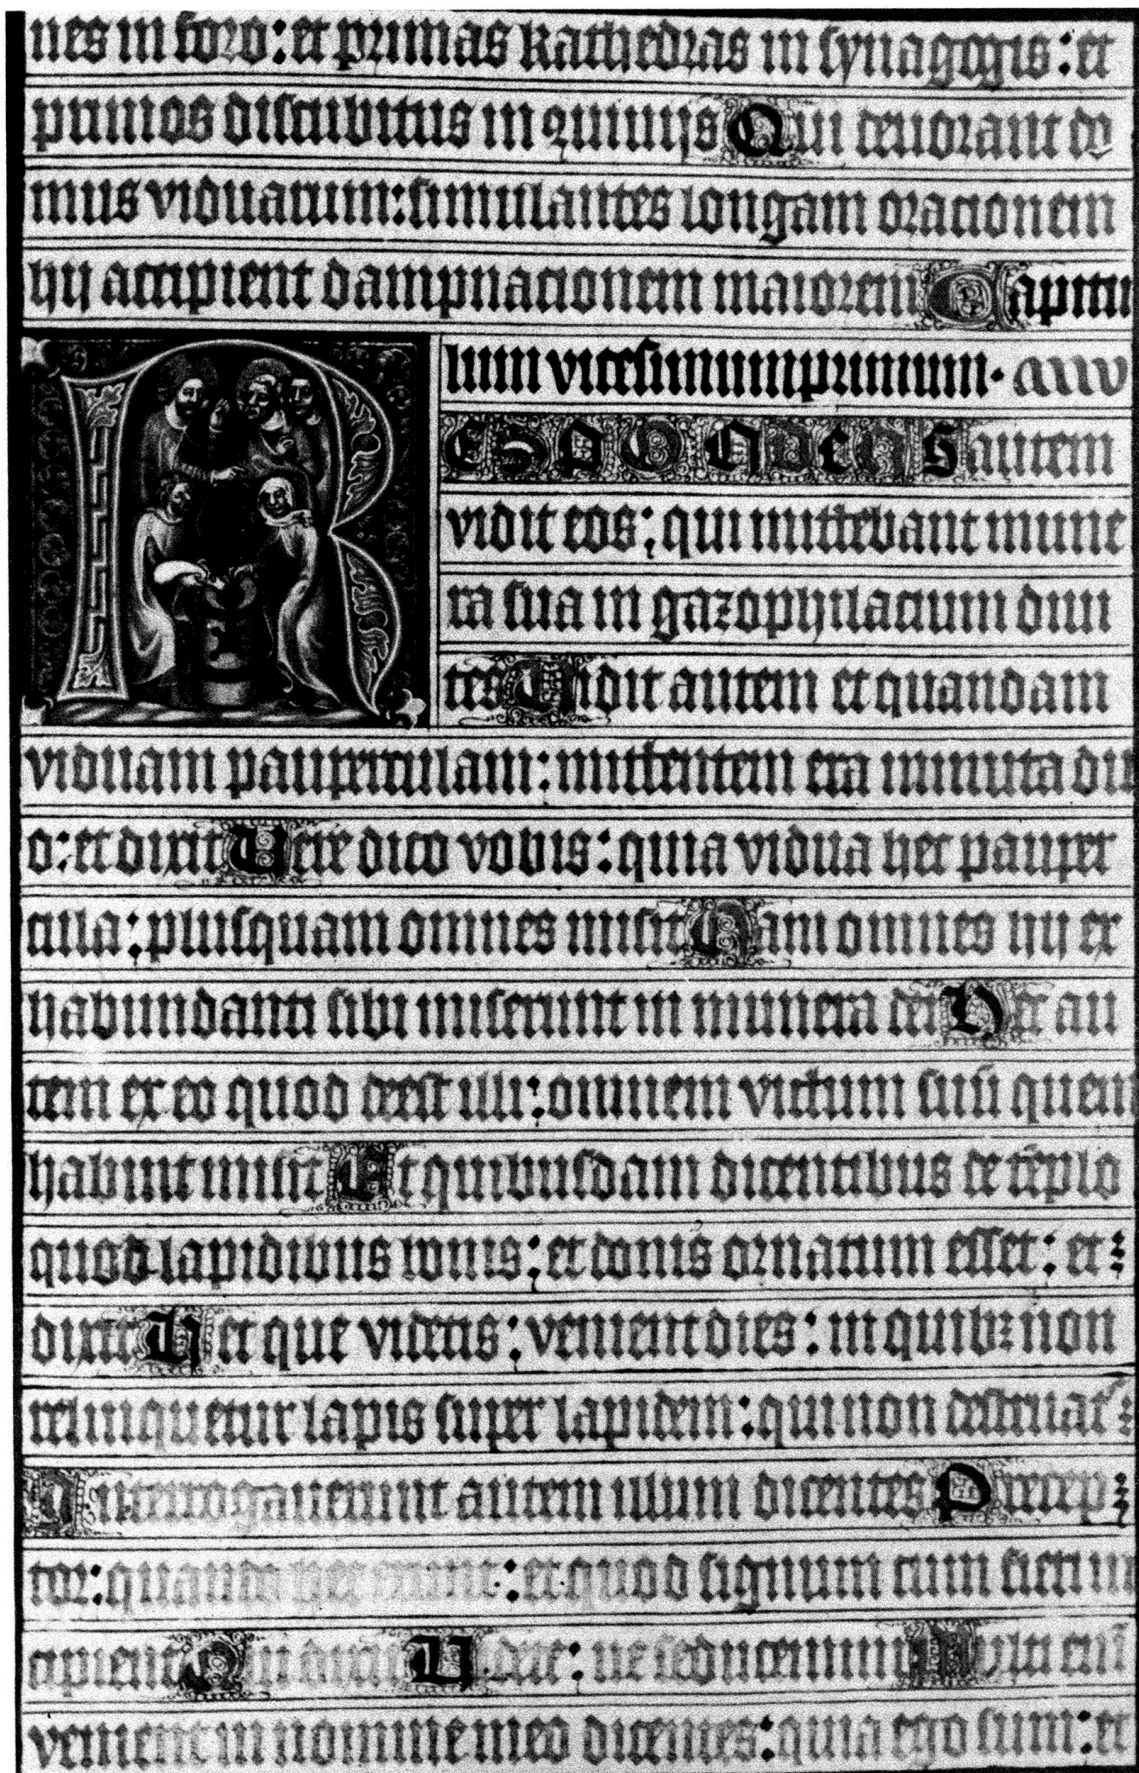 nes in foro: et primas kathedras in synagogis: et
primos discubitus in ꝯuiuijs Qui deuorant do
mus viduarum: simulantes longam orationem
hij accipient dampnacionem maiorem Capitu
lum vicesimumprimum.
ESPONDENS autem
vidit eos: qui mittebant mune
ra sua in gazophilacium diui
tes Uidit autem et quandam
viduam pauperculam: mittentem era minuta du
o: et dixit Uere dico vobis: quia vidua hec pauper
cula: plusquam omnes misit Nam omnes hij ex
habundanti sibi miserunt in munera dei Hec au
tem ex eo quod deest illi: omnem victum suū quem
habuit misit Et quibusdam dicentibus de tēplo
quod lapidibus bonis: et donis ornatum esset: et
dixit Hec que videtis: venient dies: in quibꝫ non
relinquetur lapis super lapidem: qui non destruat᷑
Interrogauerunt autem illum dicentes Precep
tor: quando hec erunt: et quod signum cum fieri in
cipient Qui dixit Uidete: ne seducamini Multi enī
venient in nomine meo dicentes: quia ego sum: et